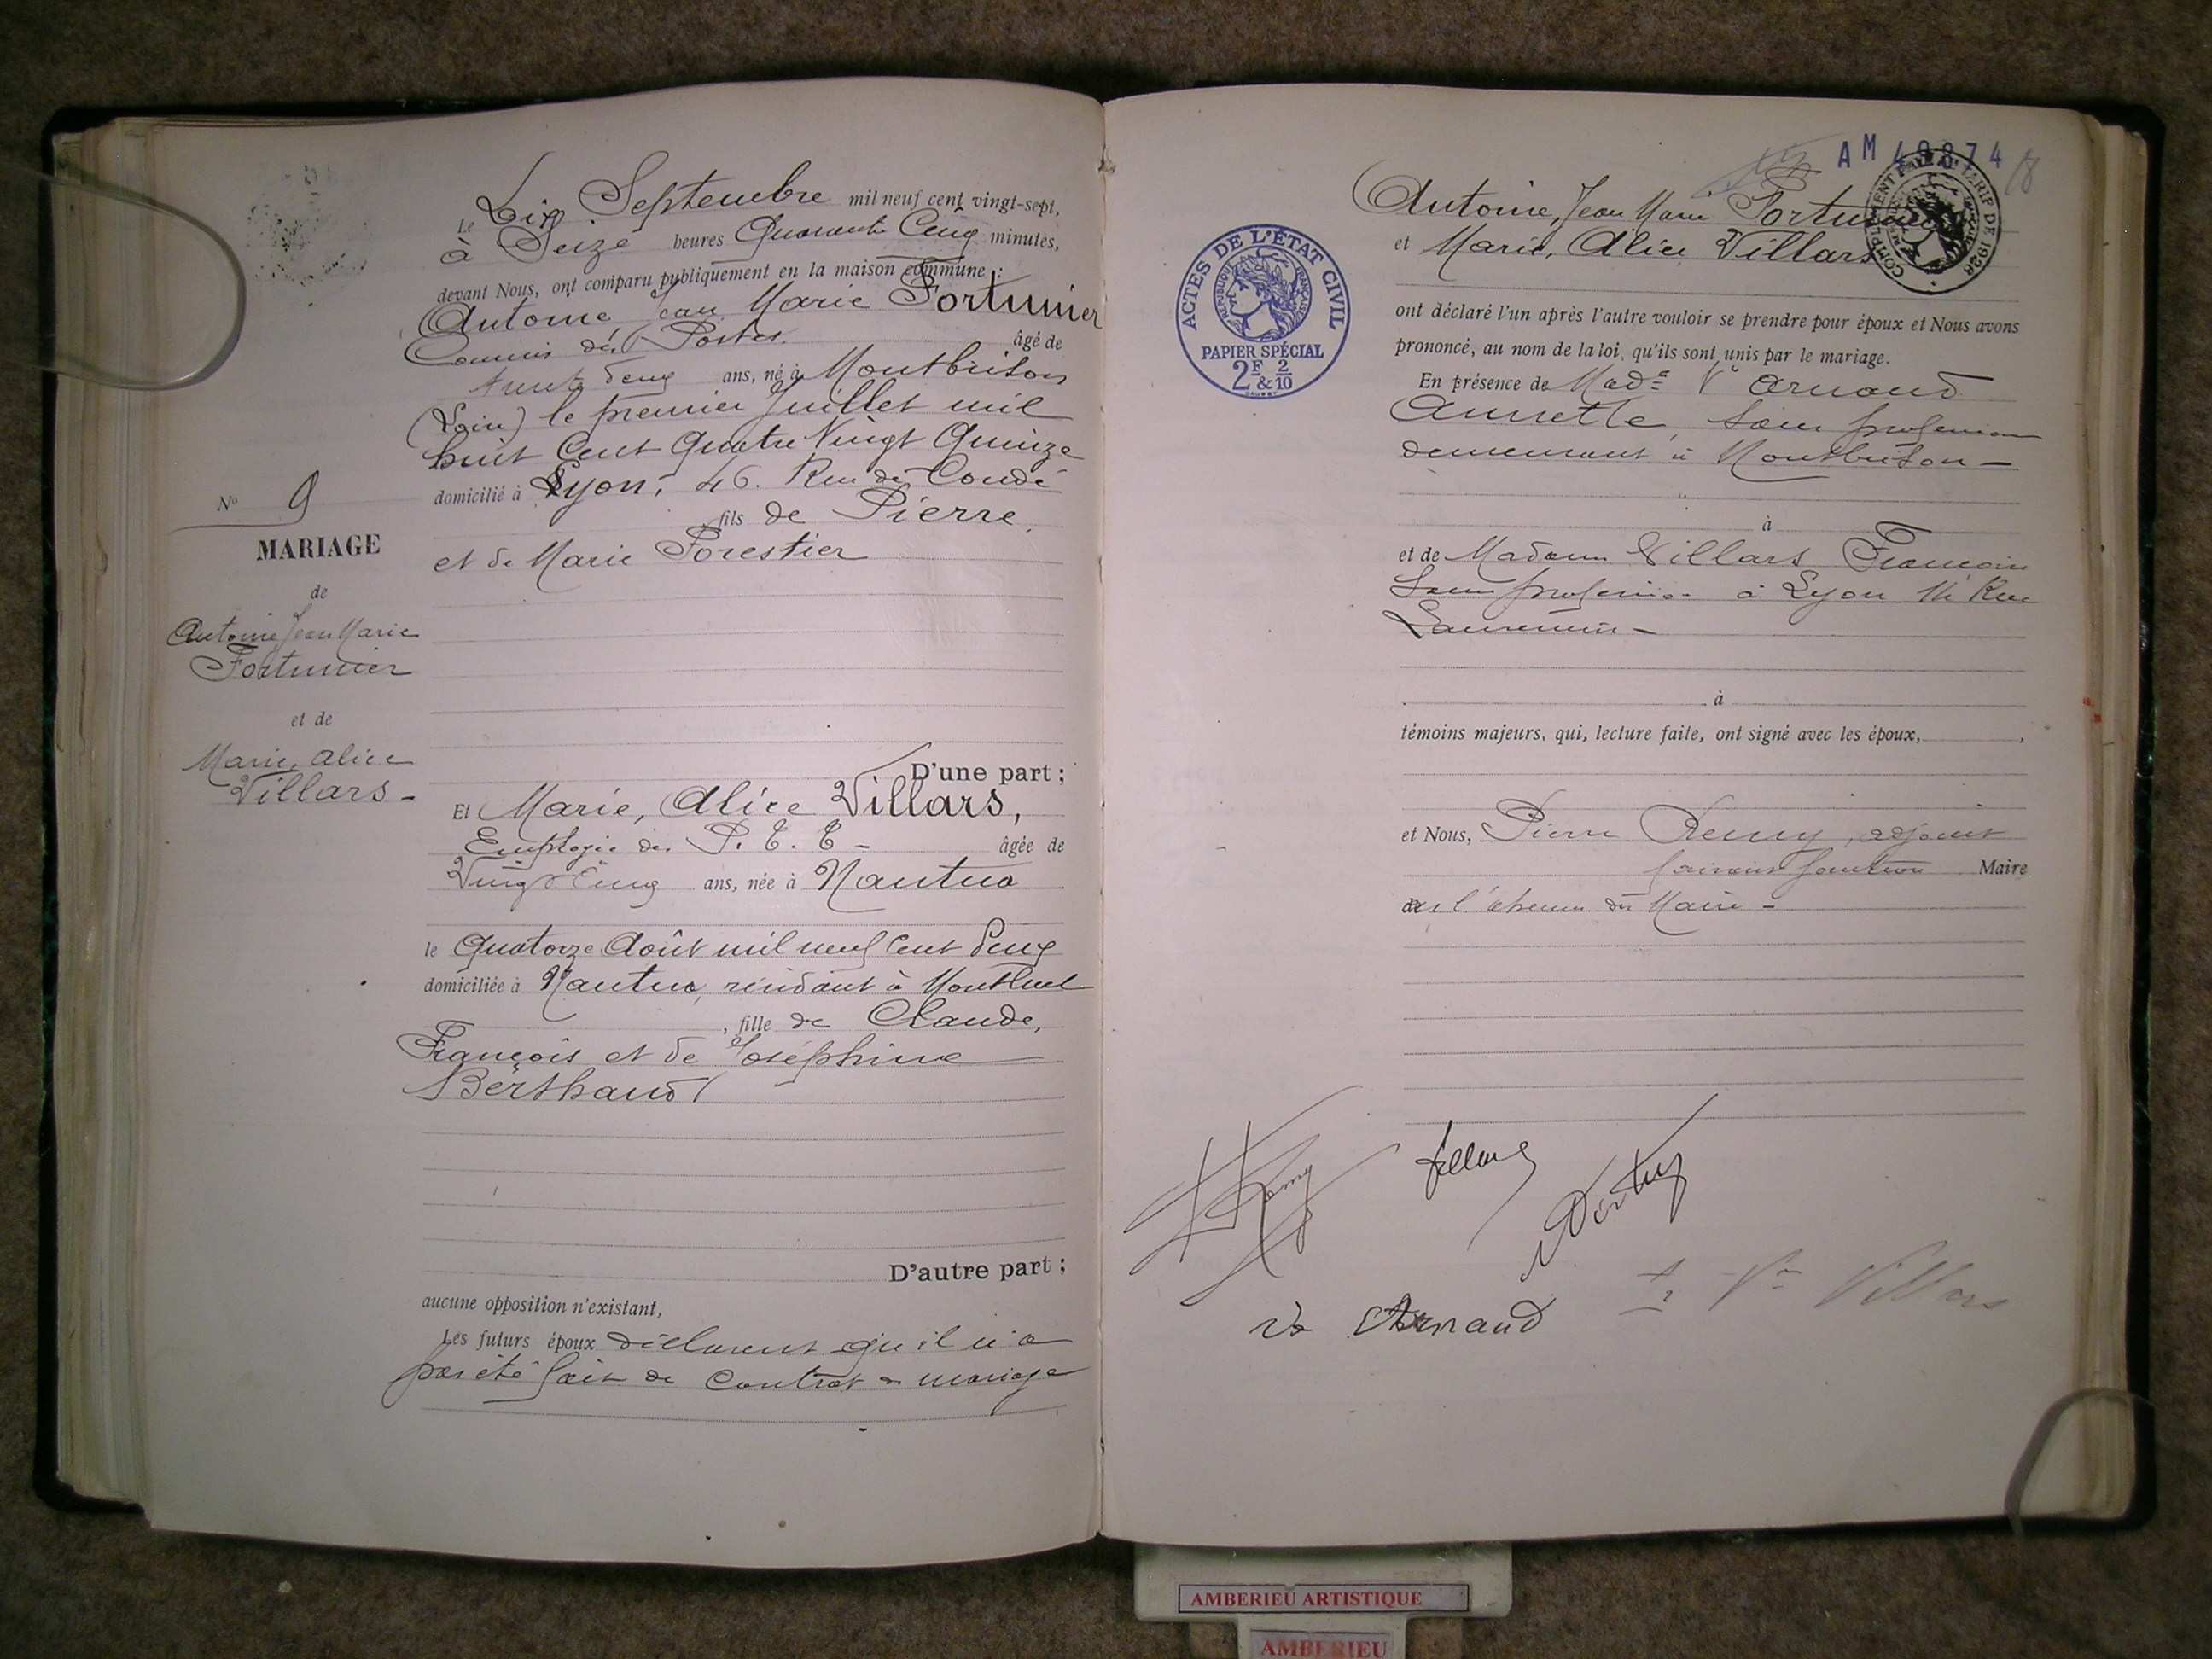 N° 9
MARIAGE
de
Antoine Jean Marie
Fortunier
et de
Marie, Alice
Villars -
Le Dix Septembre mil neuf cent vingt-sept,
à Seize heures Quarante Cinq minutes,
devant Nous, ont comparu publiquement en la maison commune :
Antoine Jean Marie Fortunier
Commis des Postes. âgé de
trente deux ans, né à Montbrison
(Loire) le premier Juillet mil
huit Cent Quatre Vingt Quinze
domicilié à Lyon, 46. Rue de Condé
fils de Pierre,
et de Marie Forestier
D'une part ;
Et Marie, Alice Villars,
Employée des P. T. T - âgée de
Vingt Cinq ans, née à Nantua
le Quatorze Août mil neuf Cent Deux
domiciliée à Nantua, résidant à Montluel
, fille de Claude,
François et de Joséphine
Berthaud
D'autre part ;
aucune opposition n'existant,
Les futurs époux déclarent qu'il n'a
pas été fait de Contrat de mariage
AM 49874
18
COMPLEMENT PAYÉ AU TARIF DE 1926
Antoine, Jean Marie Fortunier
et Marie, Alice Villars
ACTES DE L'ÉTAT CIVIL
RÉPUBLIQUE FRANÇAISE
PAPIER SPÉCIAL
2F & 2/10
ont déclaré l'un après l'autre vouloir se prendre pour époux et Nous avons
prononcé, au nom de la loi, qu'ils sont unis par le mariage.
En présence de Made Ve Arnaud
Annette, sans profession
demeurant à Montbrison -
à
et de Madame Villars
sans profession à Lyon Rue
à
témoins majeurs, qui, lecture faite, ont signé avec les époux,
et Nous, Pierre Remy, adjoint
faisant fonction Maire
de l'absence du Maire -
Remy
Villars
Ve Arnaud
Ve Villars
AMBERIEU ARTISTIQUE
AMBERIEU